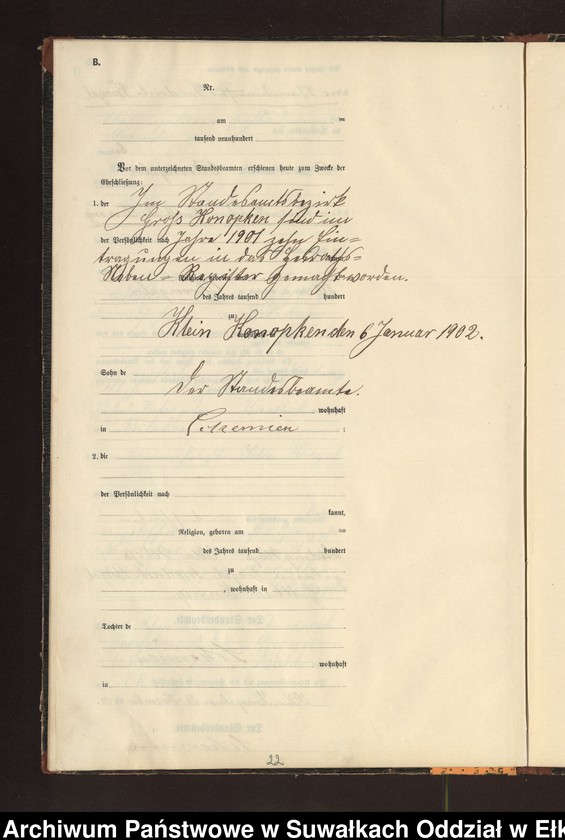 B.
Nr.
am ten
tausend neunhundert
Vor dem unterzeichneten Standesbeamten erschienen heute zum Zwecke der
Eheschließung:
1. der Im Standesamtsbezirk
Groß Konopken sind im
der Persönlichkeit nach Jahre 1901 zehn Ein=
tragungen in das Heirats=
Neben=Register gemacht worden.
des Jahres tausend hundert
zu
Klein Konopken den 6 Januar 1902.
Sohn de
Der Standesbeamte.
wohnhaft
in
2. die
der Persönlichkeit nach
kannt,
Religion, geboren am ten
des Jahres tausend hundert
zu
, wohnhaft in
Tochter de
wohnhaft
in
22
Archiwum Państwowe w Suwałkach Oddział w Ełk